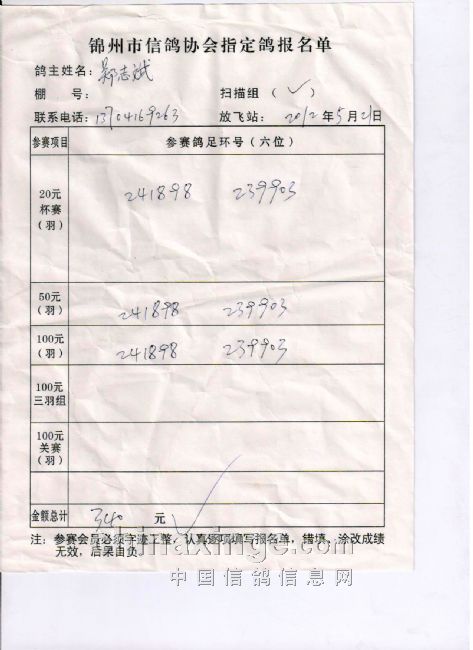 锦州市信鸽协会指定鸽报名单
鸽主姓名：郑志斌
棚　号：　扫描组（✓）
联系电话：13704169263　放飞站：2012年5月21日
参赛项目　参赛鸽足环号（六位）
20元
杯赛
（羽）
241898　239903
50元
（羽）
241898　239903
100元
（羽）
241898　239903
100元
三羽组
100元
关赛
（羽）
金额总计　340　元
注：参赛会员必须字迹工整，认真逐项填写报名单，错填、涂改成绩
无效，后果自负。
中国信鸽信息网